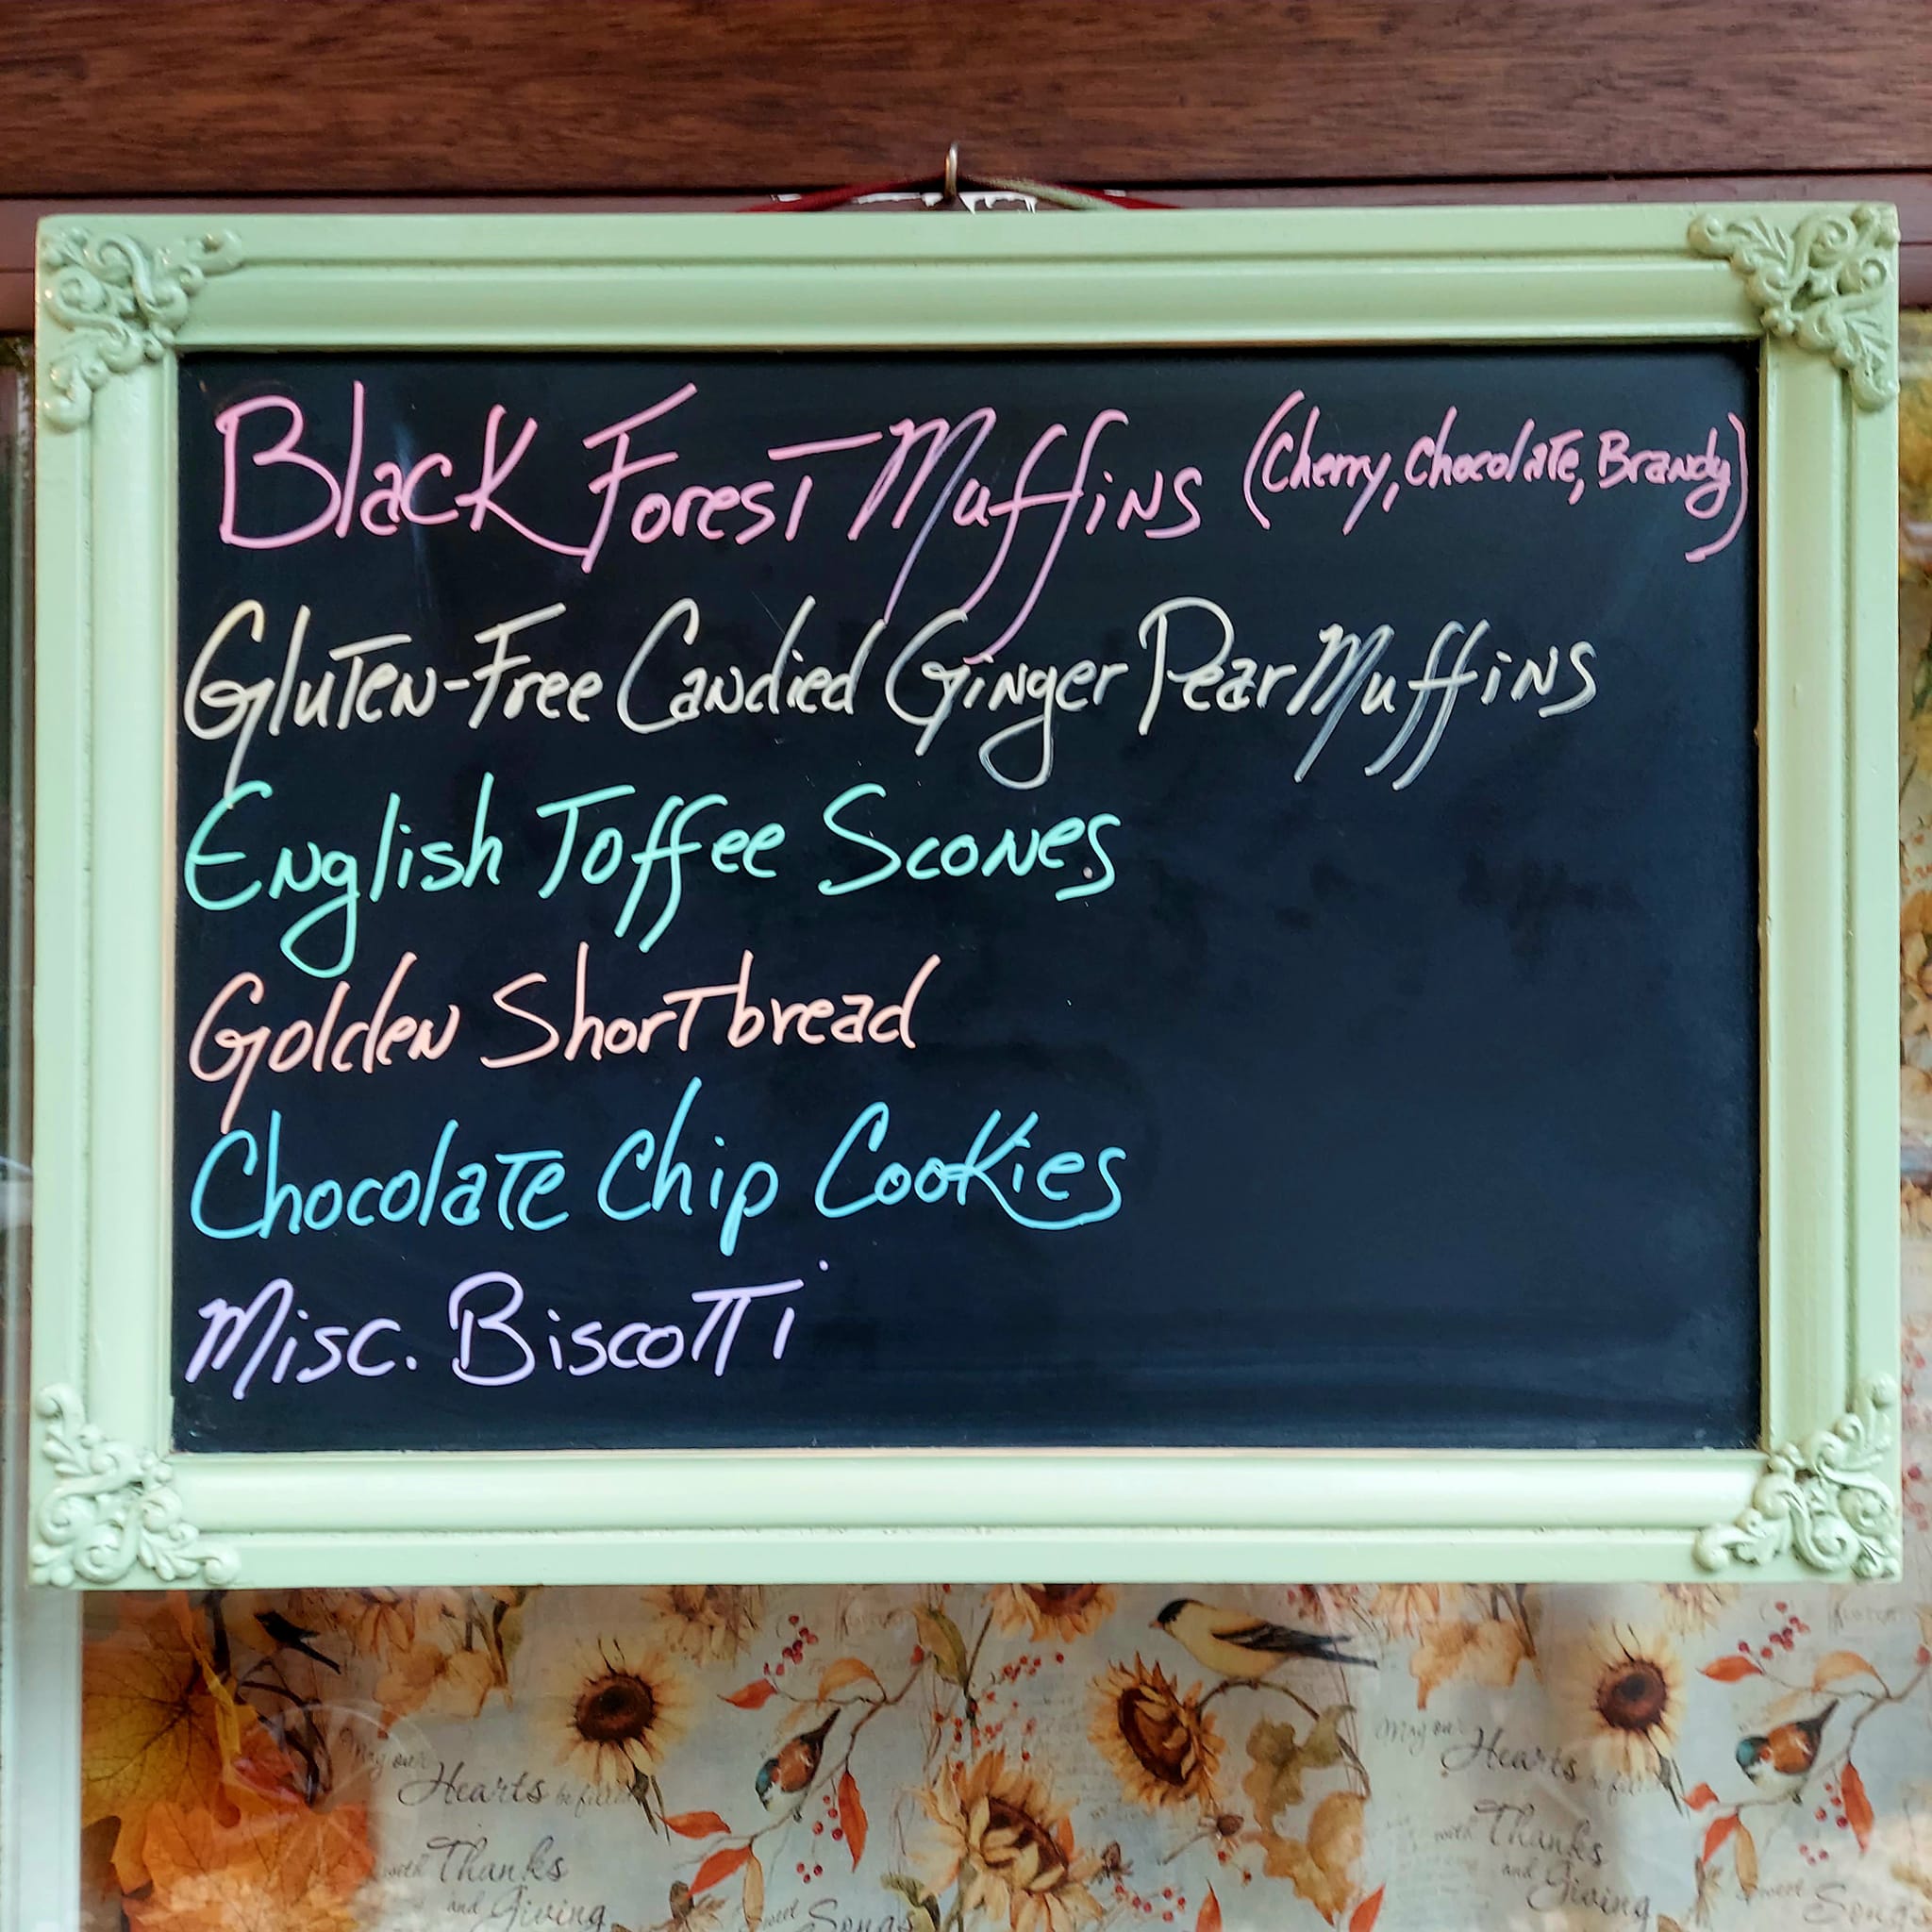 Black Forest Muffins (Cherry, Chocolate, Brandy)
Gluten-Free Candied Ginger Pear Muffins
English Toffee Scones
Golden Shortbread
Chocolate Chip Cookies
Misc. Biscotti
May our
Hearts be filled
with Thanks
and Giving
Sweet Songs
May our
Hearts be filled
with Thanks
and Giving
Sweet Song